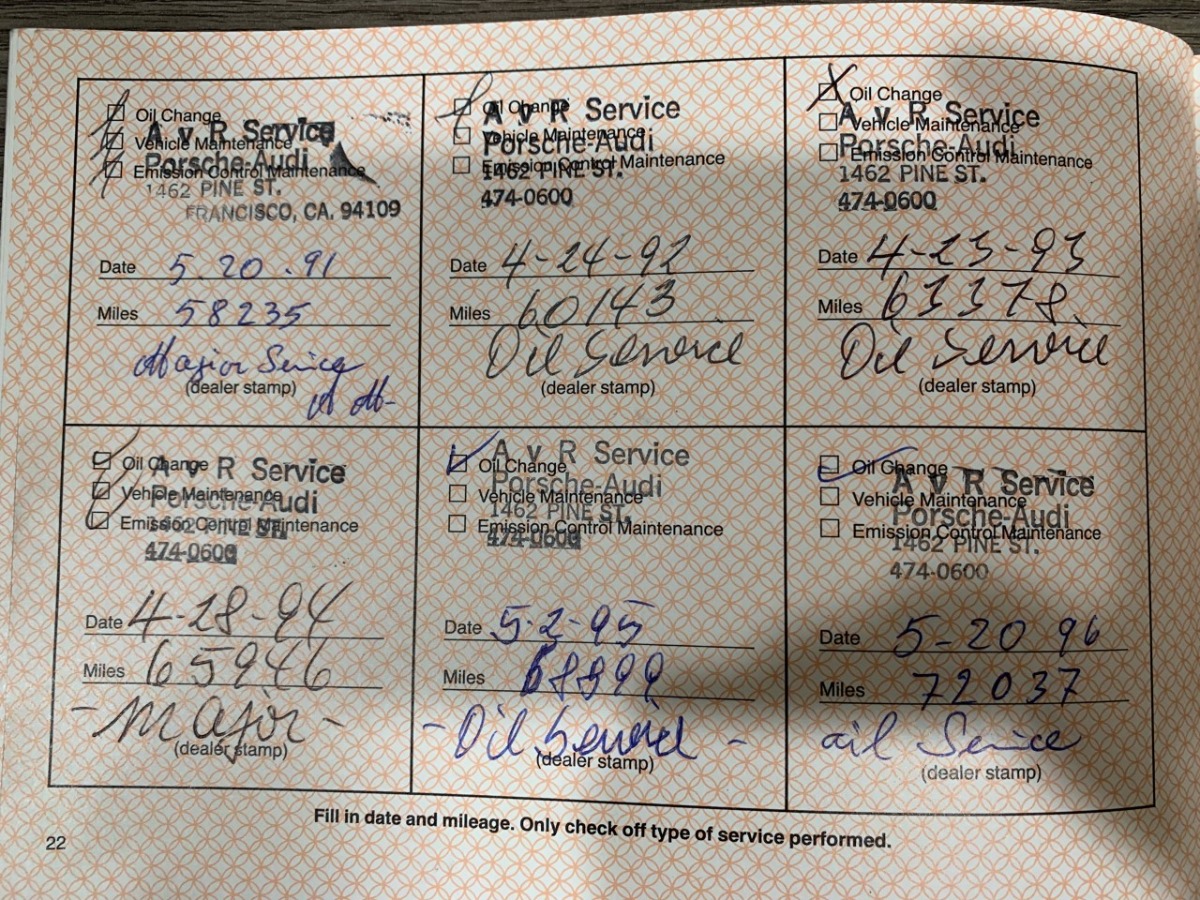 Oil Change
A v R Service
Vehicle Maintenance
Porsche-Audi
Emission Control Maintenance
1462 PINE ST.
FRANCISCO, CA. 94109
Date 5.20.91
Miles 58235
Major Service
(dealer stamp)
Oil Change
A v R Service
Vehicle Maintenance
Porsche-Audi
Emission Control Maintenance
1462 PINE ST.
474-0600
Date 4-24-92
Miles 60143
Oil Service
(dealer stamp)
Oil Change
A v R Service
Vehicle Maintenance
Porsche-Audi
Emission Control Maintenance
1462 PINE ST.
474-0600
Date 4-23-93
Miles 63378
Oil Service
(dealer stamp)
Oil Change
A v R Service
Vehicle Maintenance
Porsche-Audi
Emission Control Maintenance
1462 PINE ST.
474-0600
Date 4-28-94
Miles 65946
- Major -
(dealer stamp)
A v R Service
Oil Change
Porsche-Audi
Vehicle Maintenance
1462 PINE ST.
Emission Control Maintenance
474-0600
Date 5-2-95
Miles
- Oil Service -
(dealer stamp)
Oil Change
A v R Service
Vehicle Maintenance
Porsche-Audi
Emission Control Maintenance
1462 PINE ST.
474-0600
Date 5-20 96
Miles 72037
oil Service
(dealer stamp)
Fill in date and mileage. Only check off type of service performed.
22